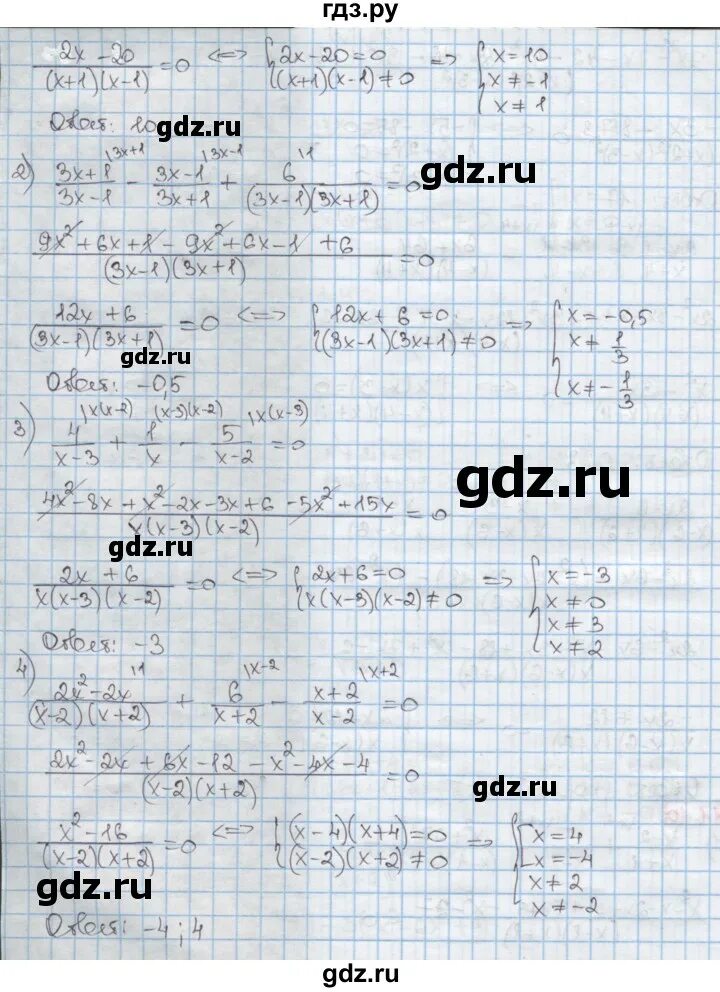 гдз.ру
(2x-20)/((x+1)(x-1)) = 0 <=> {2x-20=0; (x+1)(x-1)≠0 => {x=10; x≠-1; x≠1
Ответ: 10
gdz.ru
2) (3x+1)/(3x-1) |3x+1 - (3x-1)/(3x+1) |3x-1 + 6/((3x-1)(3x+1)) |1 = 0
gdz.ru
(9x²+6x+1-9x²+6x-1+6)/((3x-1)(3x+1)) = 0
(12x+6)/((3x-1)(3x+1)) = 0 <=> {12x+6=0; (3x-1)(3x+1)≠0 => {x=-0,5; x≠1/3; x≠-1/3
gdz.ru
Ответ: -0,5
3) 4/(x-3) |x(x-2) + 1/x |(x-3)(x-2) - 5/(x-2) |x(x-3) = 0
gdz.ru
(4x²-8x+x²-2x-3x+6-5x²+15x)/(x(x-3)(x-2)) = 0
gdz.ru
(2x+6)/(x(x-3)(x-2)) = 0 <=> {2x+6=0; x(x-3)(x-2)≠0 => {x=-3; x≠0; x≠3; x≠2
Ответ: -3
4) (2x²-2x)/((x-2)(x+2)) |1 + 6/(x+2) |x-2 - (x+2)/(x-2) |x+2 = 0
(2x²-2x+6x-12-x²-4x-4)/((x-2)(x+2)) = 0
gdz.ru
(x²-16)/((x-2)(x+2)) = 0 <=> {(x-4)(x+4)=0; (x-2)(x+2)≠0 => {[x=4; x=-4; x≠2; x≠-2
gdz.ru
Ответ: -4; 4
gdz.ru